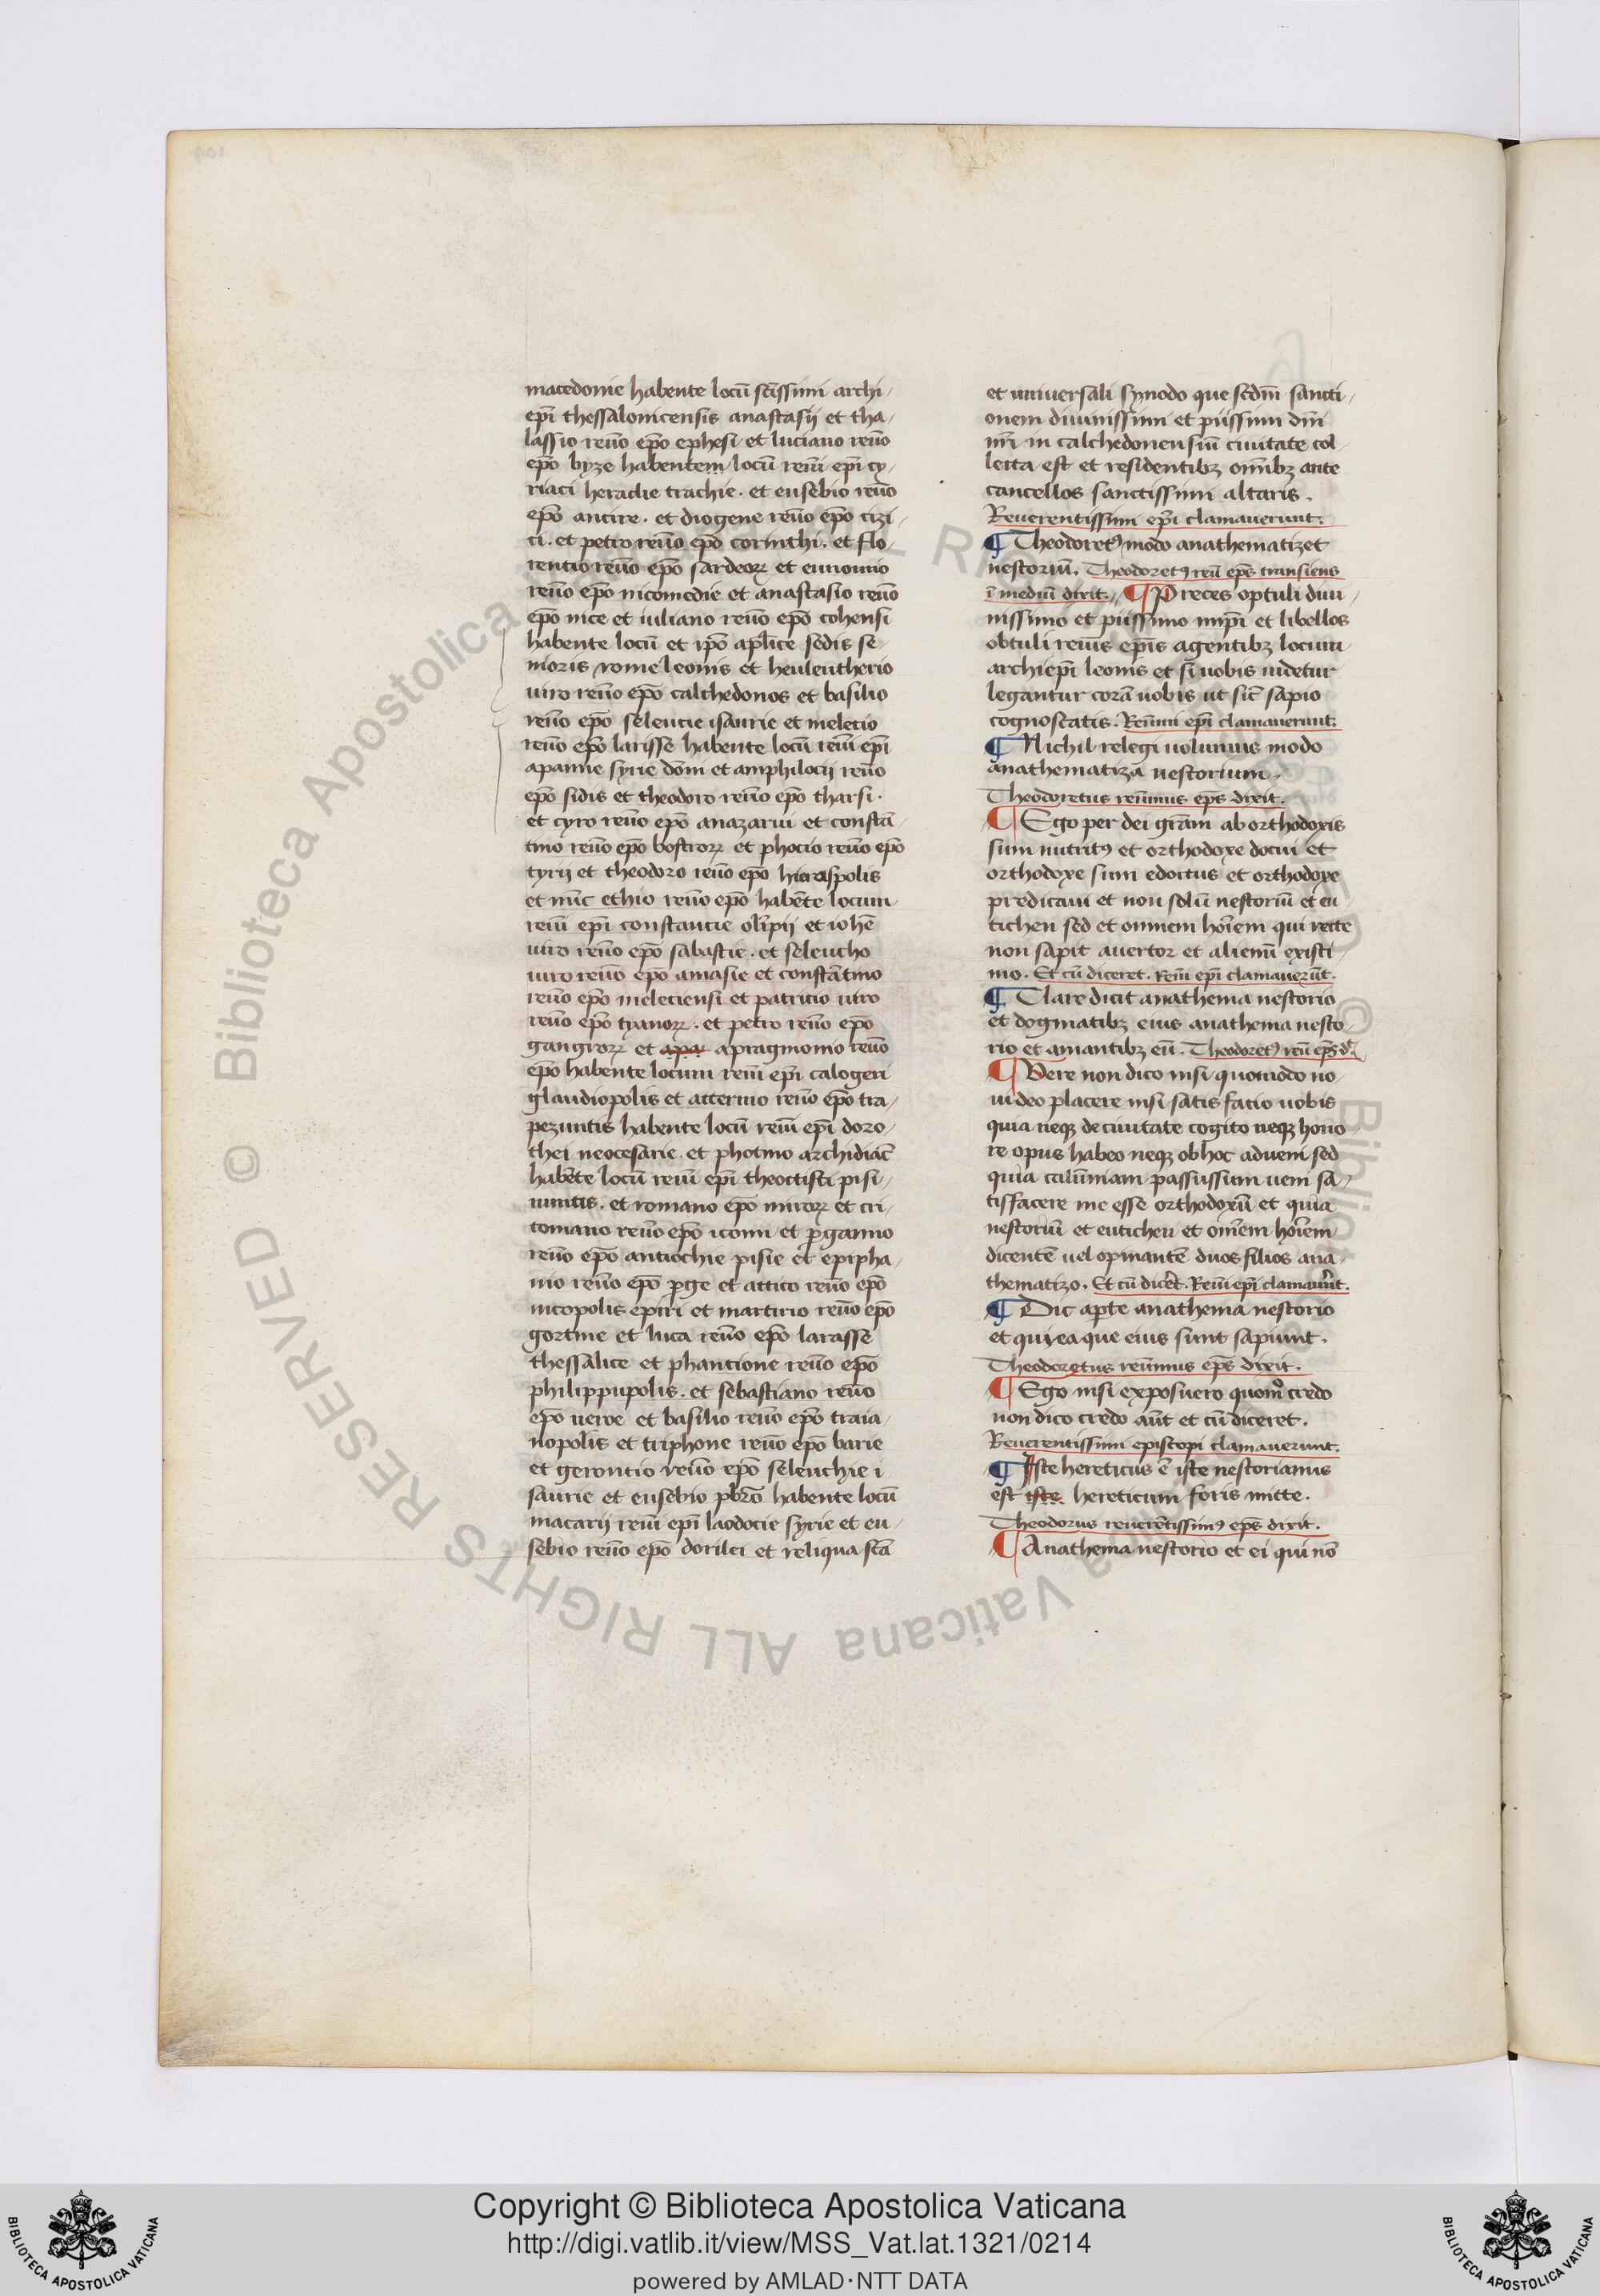 macedonie habente locū sc̄issimi archi
ep̄i thessalonicensis anastasij et tha
lassio reuō ep̄o ephesi et luciano reuō
ep̄o byze habentem locū reuī ep̄i cy
riaci heraclie trachie. et eusebio reuō
ep̄o ancire. et diogene reuō ep̄o cizi
ci. et petro reuō ep̄o corinthi. et flo
rentio reuō ep̄o sardeoꝝ et eunomio
reuō ep̄o nicomedie et anastasio reuō
ep̄o nice et iuliano reuō ep̄o cohensi
habente locū et ip̄o ap̄lice sedis se
nioris rome leonis et heuleutherio
uiro reuō ep̄o calchedonos et basilio
reuō ep̄o seleucie isaurie et melecio
reuō ep̄o larisse habente locū reuī ep̄i
apamie syrie dōni et amphilocij reuō
ep̄o sidis et theodoro reuō ep̄o tharsi.
et cyro reuō ep̄o anazarui et constā
tino reuō ep̄o bostroꝝ et phocio reuō ep̄o
tyrij et theodoro reuō ep̄o hieraspolis
et nūc ethio reuō ep̄o habēte locum
reuī ep̄i constancie olīpij et iohē
uiro reuō ep̄o sabastie. et seleucho
uiro reuō ep̄o amasie et constātino
reuō ep̄o meleciensi et patricio uiro
reuō ep̄o tyanoꝝ. et petro reuō ep̄o
gangroꝝ et apar apragmonio reuō
ep̄o habente locum reuī ep̄i calogeri
glaudiopolis et atternio reuō ep̄o tra
pezuntis habente locū reuī ep̄i doro
thei neocesarie et photino archidiāc
habēte locū reuī ep̄i theoctisti pisi
nuntis. et romano ep̄o miroꝝ et cri
tomano reuō ep̄o iconii et ꝑgamio
reuō ep̄o antiochie pisie et epipha
nio reuō ep̄o ꝑge et attico reuō ep̄o
nicopolis epiri et martirio reuō ep̄o
gortine et luca reuō ep̄o larasse
thessalice et phancione reuō ep̄o
philippupolis. et sebastiano reuō
ep̄o ueroe et basilio reuō ep̄o traia
nopolis et triphone reuō ep̄o barie
et gerontio reuō ep̄o seleuchie i
saurie et eusebio pb̄ro habente locū
macarij reuī ep̄i laodocie syrie et eu
sebio reuō ep̄o dorilei et reliqua scā
et uniuersali synodo que scdm̄ sancti
onem diuinissimi et piissimi dn̄i
nr̄i in calchedonensiū ciuitate col
lecta est et residentibꝫ om̄ibꝫ ante
cancellos sanctissimi altaris.
Reuerentissimi ep̄i clamauerunt.
¶ Theodoretꝰ modo anathematizet
nestoriū. Theodoretꝰ reū ep̄s transiens
ī mediū dixit. ¶ Preces optuli diui
nissimo et piissimo imp̄i et libellos
obtuli reuīs ep̄is agentibꝫ locum
archiep̄i leonis et si uobis uidetur
legantur corā uobis ut sic̄ sapio
cognoscatis. Reuīmi ep̄i clamauerunt.
¶ Nichil relegi uolumus modo
anathematizā nestorium.
Theodoretus reuīmus ep̄s dixit.
¶ Ego per dei grām ab orthodoxis
sum nutritꝰ et orthodoxe docui et
orthodoxe sum edoctus et orthodoxe
predicaui et non solū nestoriū et eu
tichen sed et omnem hoīem qui recte
non sapit auertor et alienū existi
mo. Et cū diceret. Reuī ep̄i clamauerūt.
¶ Clare dicit anathema nestorio
et dogmatibꝫ eius anathema nesto
rio et amantibꝫ eū. Theodoretꝰ reū ep̄s d̄.
¶ Vere non dico nisi quomodo no
ui deo placere nisi satis facio uobis
quia neqꝫ de ciuitate cogito neqꝫ hono
re opus habeo neqꝫ ob hoc adueni sed
quia calūniam passus sum ueni sa
tisfacere me esse orthodoxū et quia
nestoriū et eutichen et om̄em hoīem
dicentē uel opinantē duos filios ana
thematizo. Et cū dicēt. Reuī ep̄i clamauer̄t.
¶ Dic aꝑte anathema nestorio
et qui ea que eius sunt sapiunt.
Theodoretus reuīmus ep̄s dixit.
¶ Ego nisi exposuero quomͦ credo
non dico credo aūt et cū diceret.
Reuerentissimi episcopi clamauerunt.
¶ Iste hereticus ē iste nestorianus
est iste hereticum foris mitte.
Theodorus reuerētissimꝰ ep̄s dixit.
¶ Anathema nestorio et ei qui nō
Copyright © Biblioteca Apostolica Vaticana
http://digi.vatlib.it/view/MSS_Vat.lat.1321/0214
powered by AMLAD·NTT DATA
BIBLIOTECA APOSTOLICA VATICANA
BIBLIOTECA APOSTOLICA VATICANA